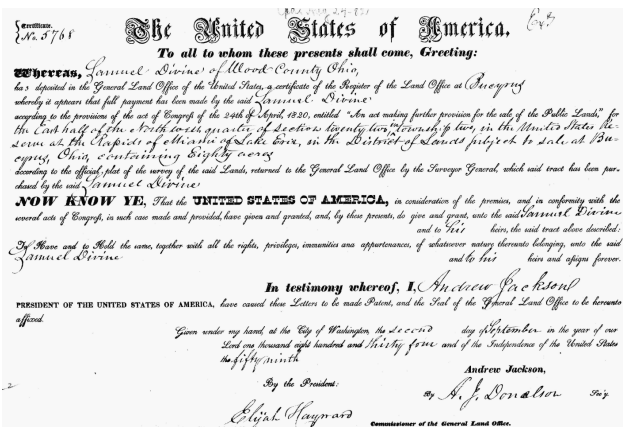 Certificate.
No. 5768
Ex 3
The United States of America.
To all to whom these presents shall come, Greeting:
Whereas, Samuel Divine of Wood County Ohio,
has deposited in the General Land Office of the United States, a certificate of the Register of the Land Office at Bucyrus
whereby it appears that full payment has been made by the said Samuel Divine
according to the provisions of the act of Congress of the 24th of April, 1820, entitled "An act making further provision for the sale of the Public Lands," for
the East half of the North West quarter of section twenty two, in township two, in the United States Re-
serve at the Rapids of Miami of Lake Erie, in the District of Lands subject to sale at Bu-
cyrus, Ohio, containing Eighty acres
according to the official plat of the survey of the said Lands, returned to the General Land Office by the Surveyor General, which said tract has been pur-
chased by the said Samuel Divine
NOW KNOW YE, That the UNITED STATES OF AMERICA, in consideration of the premises, and in conformity with the
several acts of Congress, in such case made and provided, have given and granted, and, by these presents, do give and grant, unto the said Samuel Divine
and to his heirs, the said tract above described:
To Have and to Hold the same, together with all the rights, privileges, immunities and appurtenances, of whatsoever nature thereunto belonging, unto the said
Samuel Divine and to his heirs and assigns forever.
In testimony whereof, I, Andrew Jackson
PRESIDENT OF THE UNITED STATES OF AMERICA, have caused these Letters to be made Patent, and the Seal of the General Land Office to be hereunto
affixed.
Given under my hand, at the City of Washington the second day of September in the year of our
Lord one thousand eight hundred and thirty four and of the Independence of the United States
the fifty ninth
Andrew Jackson,
By the President:
By A. J. Donelson Sec'y.
Elijah Hayward
Commissioner of the General Land Office.